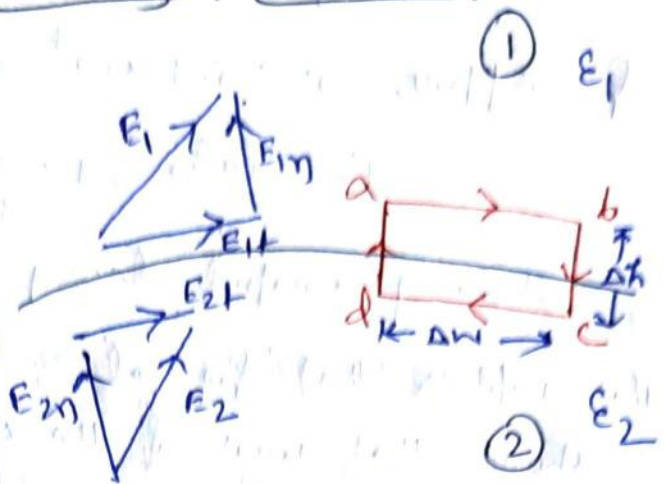 ① ε₁
E₁ E₁n
a b
E₁t
Δh
E₂t
d Δw c
E₂n E₂
② ε₂